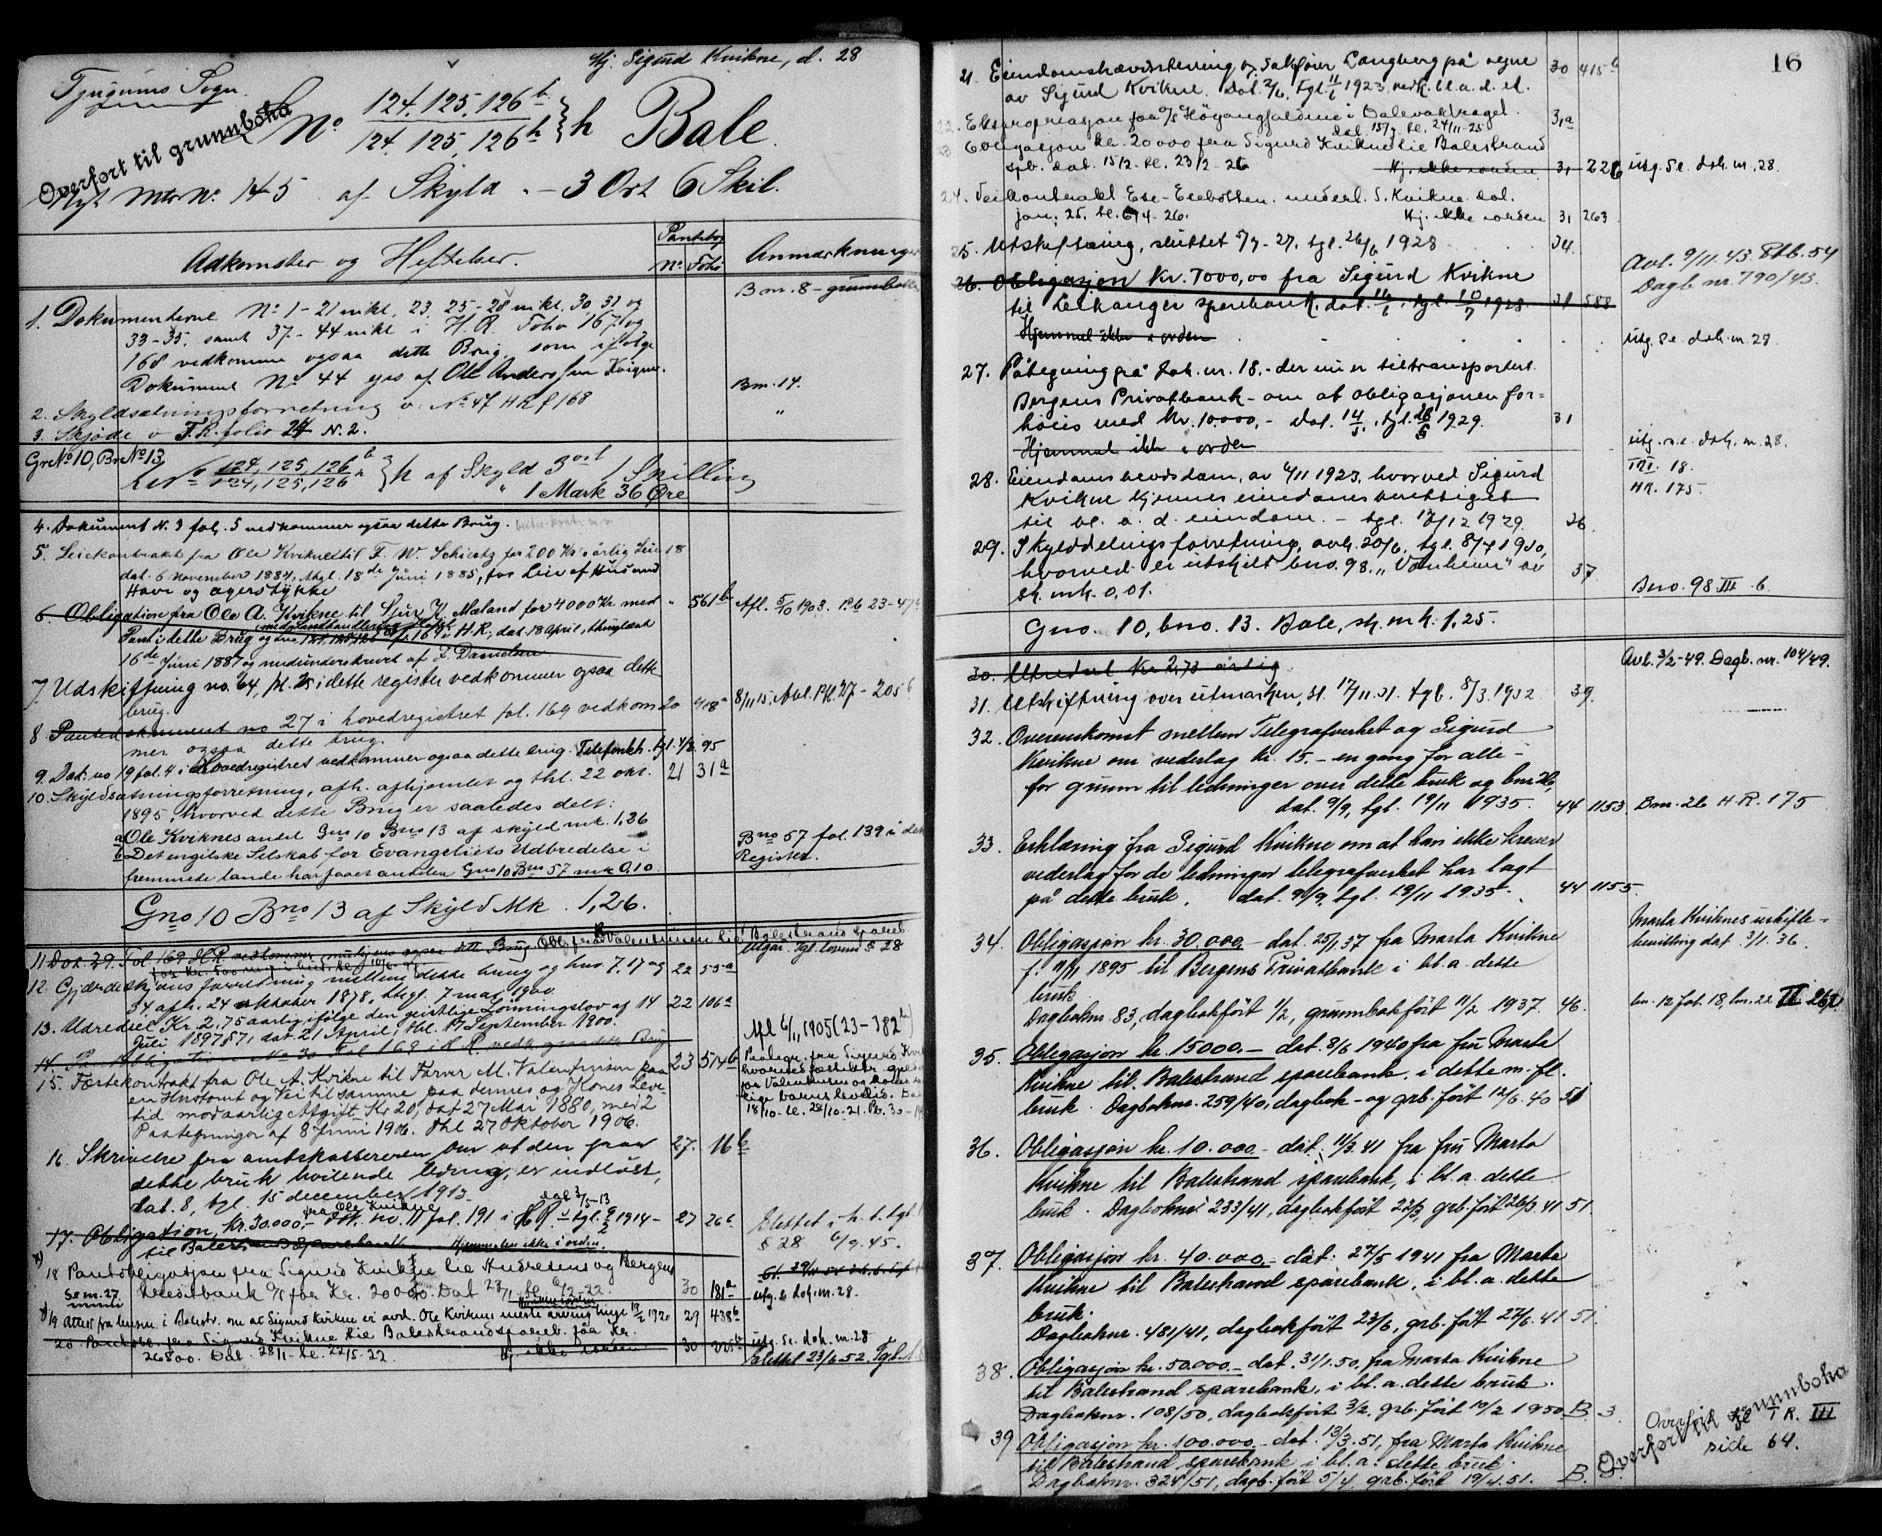 Hj. Sigurd Kvikne, d. 28
Tjugums Sogn.
Overført til grunnboka
No 124.125.126 b / 124.125.126 h } h Bale.
Nyt Mtr No. 145 af Skyld. – 3 Ort 6 Skil.
Adkomster og Heftelser.
Pantebog
No Folio
Anmærkninger
Bm. 8 – grunnboken
1. Dokumenterne No 1–21 inkl, 23, 25–28 inkl. 30 31 og
33–35, samt 37–44 inkl i H.R. Folio 167 og
168 vedkomme ogsaa dette Brug, som ifølge
Dokument No 44 ejes af Ole Anderssen Kvigne.
Bm. 14.
2. Skyldsætningsforretning v. No 47 HR f 168 "
3. Skjøde v F.R. folio 24 N. 2.
Gr No 10, Br No 13
L No 124, 125, 126 b / 124, 125, 126 h } h af Skyld 3 ort 1 Skilling
" 1 Mark 36 Øre
4. Dokument N. 3 fol. 5 vedkommer ogsaa dette Brug.
5. Leiekontrakt fra Ole Kvikne til F. W. Schiertz for 200 Kr i årlig Leie 18
dat. 6 November 1884, thgl. 18de Juni 1885, for Leie af Hus med
Have og agerstykke
6. Obligation fra Ole A. Kvikne til Sjur J. Mæland for 4000 Kr med " 561 b Afl. 5/10 1903. Pb 23–47
Pant i dette Brug og 169 i H.R, dat. 18 April, thinglæst
16de Juni 1887 og medunderskrevet af J. Danielsen
7. Udskiftning no. 64, fol. 25 i dette register vedkommer ogsaa dette
brug. 20 418 a 8/11 15. Avl. Pb. 27 – 205 b
8. Pantedokument no 27 i hovedregistret fol. 169 vedkom-
mer ogsaa dette brug.
9. Dok. no 19 fol. 4 i Hovedregistret vedkommer ogsaa dette brug. Telefonkh. tgl. 4/3 95
10. Skyldsætningsforretning, afh. afhjemlet og thl. 22 okt. 21 31 a
1895, hvorved dette Brug er saaledes delt:
a Ole Kviknes andel Gno 10 Bno 13 af skyld mk. 1,26
b Det engelske Selskab for Evangeliets Udbredelse i
fremmede lande har faaet andelen Gno 10 Bno 57 mk 0,10.
Bno 57 fol 139 i dette
Register.
Gno 10 Bno 13 af Skyld Mk. 1,26.
11 Dok. 39. Fol. 169 H.R vedkommer muligens ogsaa dette Brug Obl. fra Valentinsen til Balestrand Spareb.
Utgår. Tgl. loven § 28
12. Gjerdeskjønsforretning mellem dette brug og bno. 7, 17 og 22 55 a
34 afh. 24 oktober 1878, thgl. 7 mai 1900.
13. Udredsel Kr. 2,75 aarlig ifølge den geistlige Lønningslov af 14 22 106 a
Juli 1897 § 7, dat 21 April, thl. 17 September 1900.
14. Pantobligation No 30 Fol 169 i H.R. vedk. ogsaa dette Brug
Afl 6/1, 1905 (23–382 b)
15. Fæstekontrakt fra Ole A. Kvikne til Farver M. Valentinsen paa 23 514 b
en Hustomt og Vei til samme paa dennes og Kones Leve-
tid mod aarlig Afgift Kr 20, dat 27 Mai 1880, med 2
Paategninger af 8 Juni 1906. Thl 27 Oktober 1906.
Paategn. fra Sigurd Kvikne
18/10 – te. 28/10–21. Pb. 30
16. Skrivelse fra amtskassereren om at den paa 27. 16 b
dette bruk hvilende leding, er indløst,
dat. 8, tgl. 15 december 1913.
17. Obligation, Kr. 30000.– fra Ole Kvikne Dok. no. 11 fol. 191 i H.R. dat 3/5–13 tgl. 9/2 1914 – 27 26 b
til Balestrand Sparebank Hjemmelen ikke i orden.
Slettet i h. t. tgl.l.
§ 28 6/9. 45.
18 Pantobligasjon fra Sigurd Kvikne til Andresens og Bergens
Kreditbank A/S for Kr. 20000 Dat 23/1 te. 6/2–22. 30 181 a utg. se dok. m. 28.
Se m. 27.
19 Attest fra lensm. i Balestr. om at Sigurd Kvikne er avd. Ole Kviknes eneste arving tingl 19/2 1920 29 438 b
20 Pantobl. fra Sigurd Kvikne til Balestrand spareb. for kr. 30 225 b utg. se. dok. m. 28
26800. Dat 28/11 – te. 22/5–22. Hj. ikke i orden Slettet 23/6 52. Tgl.
16
21. Eiendomshævdstevning v. Sakfører Langberg på vegne 30 415 b
av Sigurd Kvikne. Dat. 2/6, tgl. 11/6 1923 vedk. bl. a. d. et.
22. Ekspropriasjon for A/S Höyangfaldene i Dalevatdraget. 31 a
dat. 15/7 te. 24/11–25
23 Obligasjon kr. 20000 fra Sigurd Kvikne til Balestrand
spb. dat. 15/2. te. 23/2–26 Hj. ikke i orden 31 226 utg. se. dok. m. 28.
24. Veikontrakt Ese–Esebotten. underl. S. Kvikne dat.
jan. 25. te. 6/4–26. Hj. ikke i orden 31 263
25. Utskiftning, sluttet 5/7–27, tgl. 26/6 1928 34
26. Obligasjon Kr. 7000,00 fra Sigurd Kvikne
til Leikanger sparebank, dat. tgl. 10/7 1928. 31 588
Hjemmel ikke i orden
Avl. 9/11.43 Ptb. 54
Dagb. nr. 790/43.
utg. se. dok. m. 28.
27. Påtegning på dok. nr. 18. – der nu er tiltransportert
Bergens Privatbank – om at obligasjonen for-
høies med kr. 10000,– dat. tgl. 1929. 31
Hjemmel ikke i orden
utg. s. e. dok. m. 28.
28. Eiendomshevdsdom, av 6/11 1923, hvorved Sigurd
Kvikne kjennes eiendomsberettiget
til bl. a. d. eiendom. – tgl. 12/12 1929. 26
III. 18.
HR. 175.
29. Skylddelingsforretning, avh. 20/6, tgl. 8/7 1930,
hvorved er utskilt bno. 98. „Vonheim“ av 37
sk. mk. 0,01.
Bno. 98 III – 6.
Gno. 10, bno. 13. Bale, sk. mk. 1,25.
30. Utredsel kr 2,73 årlig
Avl. 3/2–49. Dagb. nr. 104/49.
31. Utskiftning over utmarken, sl. 17/11.31. tgl. 8/3. 1932. 39.
32. Overenskomst mellem Telegrafverket og Sigurd
Kvikne om vederlag kr. 15. – en gang for alle –
for grunn til ledninger over dette bruk og bnr 26,
dat. 9/9, tgl. 19/11 1935. 44 1153. Bnr. 26 H.R. 175
33. Erklæring fra Sigurd Kvikne om at han ikke krever
vederlag for de ledninger telegrafverket har lagt
på dette bruk, dat. 9/9, tgl. 19/11 1935. 44 1155.
34. Obligasjon kr. 30.000.– dat. 25/1.37 fra Marta Kvikne
f. 11/11 1895 til Bergens Privatbank i bl. a. dette
bruk.
Dagboknr 83, dagbokført 1/2, grunnbokført 11/2 1937. 46.
Marta Kviknes uskifte-
bevilling dat. 3/1. 36.
bn. 12 fol. 18, bn. 22 II 267
35. Obligasjon kr. 15000.– dat. 8/6 1940 fra fru Marta
Kvikne til Balestrand sparebank, i dette m. fl.
bruk. Dagboknr. 259/40, dagbok- og grb. ført 12/6. 40 51
36. Obligasjon kr. 10.000.– dat. 11/3. 41 fra fru Marta
Kvikne til Balestrand sparebank, i bl. a. dette
bruk. Dagboknr 233/41, dagbokført 22/3, grb. ført 26/3 41 51.
37. Obligasjon kr. 40.000.– dat. 27/5 1941 fra Marta
Kvikne til Balestrand sparebank, i bl. a. dette
bruk.
Dagboknr. 481/41, dagbokført 23/6, grb. ført 27/6. 41 51.
38. Obligasjon kr. 50.000.– dat. 31/1.50, fra Marta Kvikne
til Balestrand sparebank, i bl. a. dette bruk.
Dagboknr. 108/50, dagbokført 3/2, grb. ført 10/2 1950 B. 3.
39 Obligasjon kr. 100.000.– dat. 13/3.51, fra Marta Kvikne
til Balestrand sparebank i bl. a. dette bruk.
Dagboknr. 324/51, dagb. ført 5/4, grb. ført 19/4.51. B.
Overført til grunnboka
Overført til T R. III
side 64.